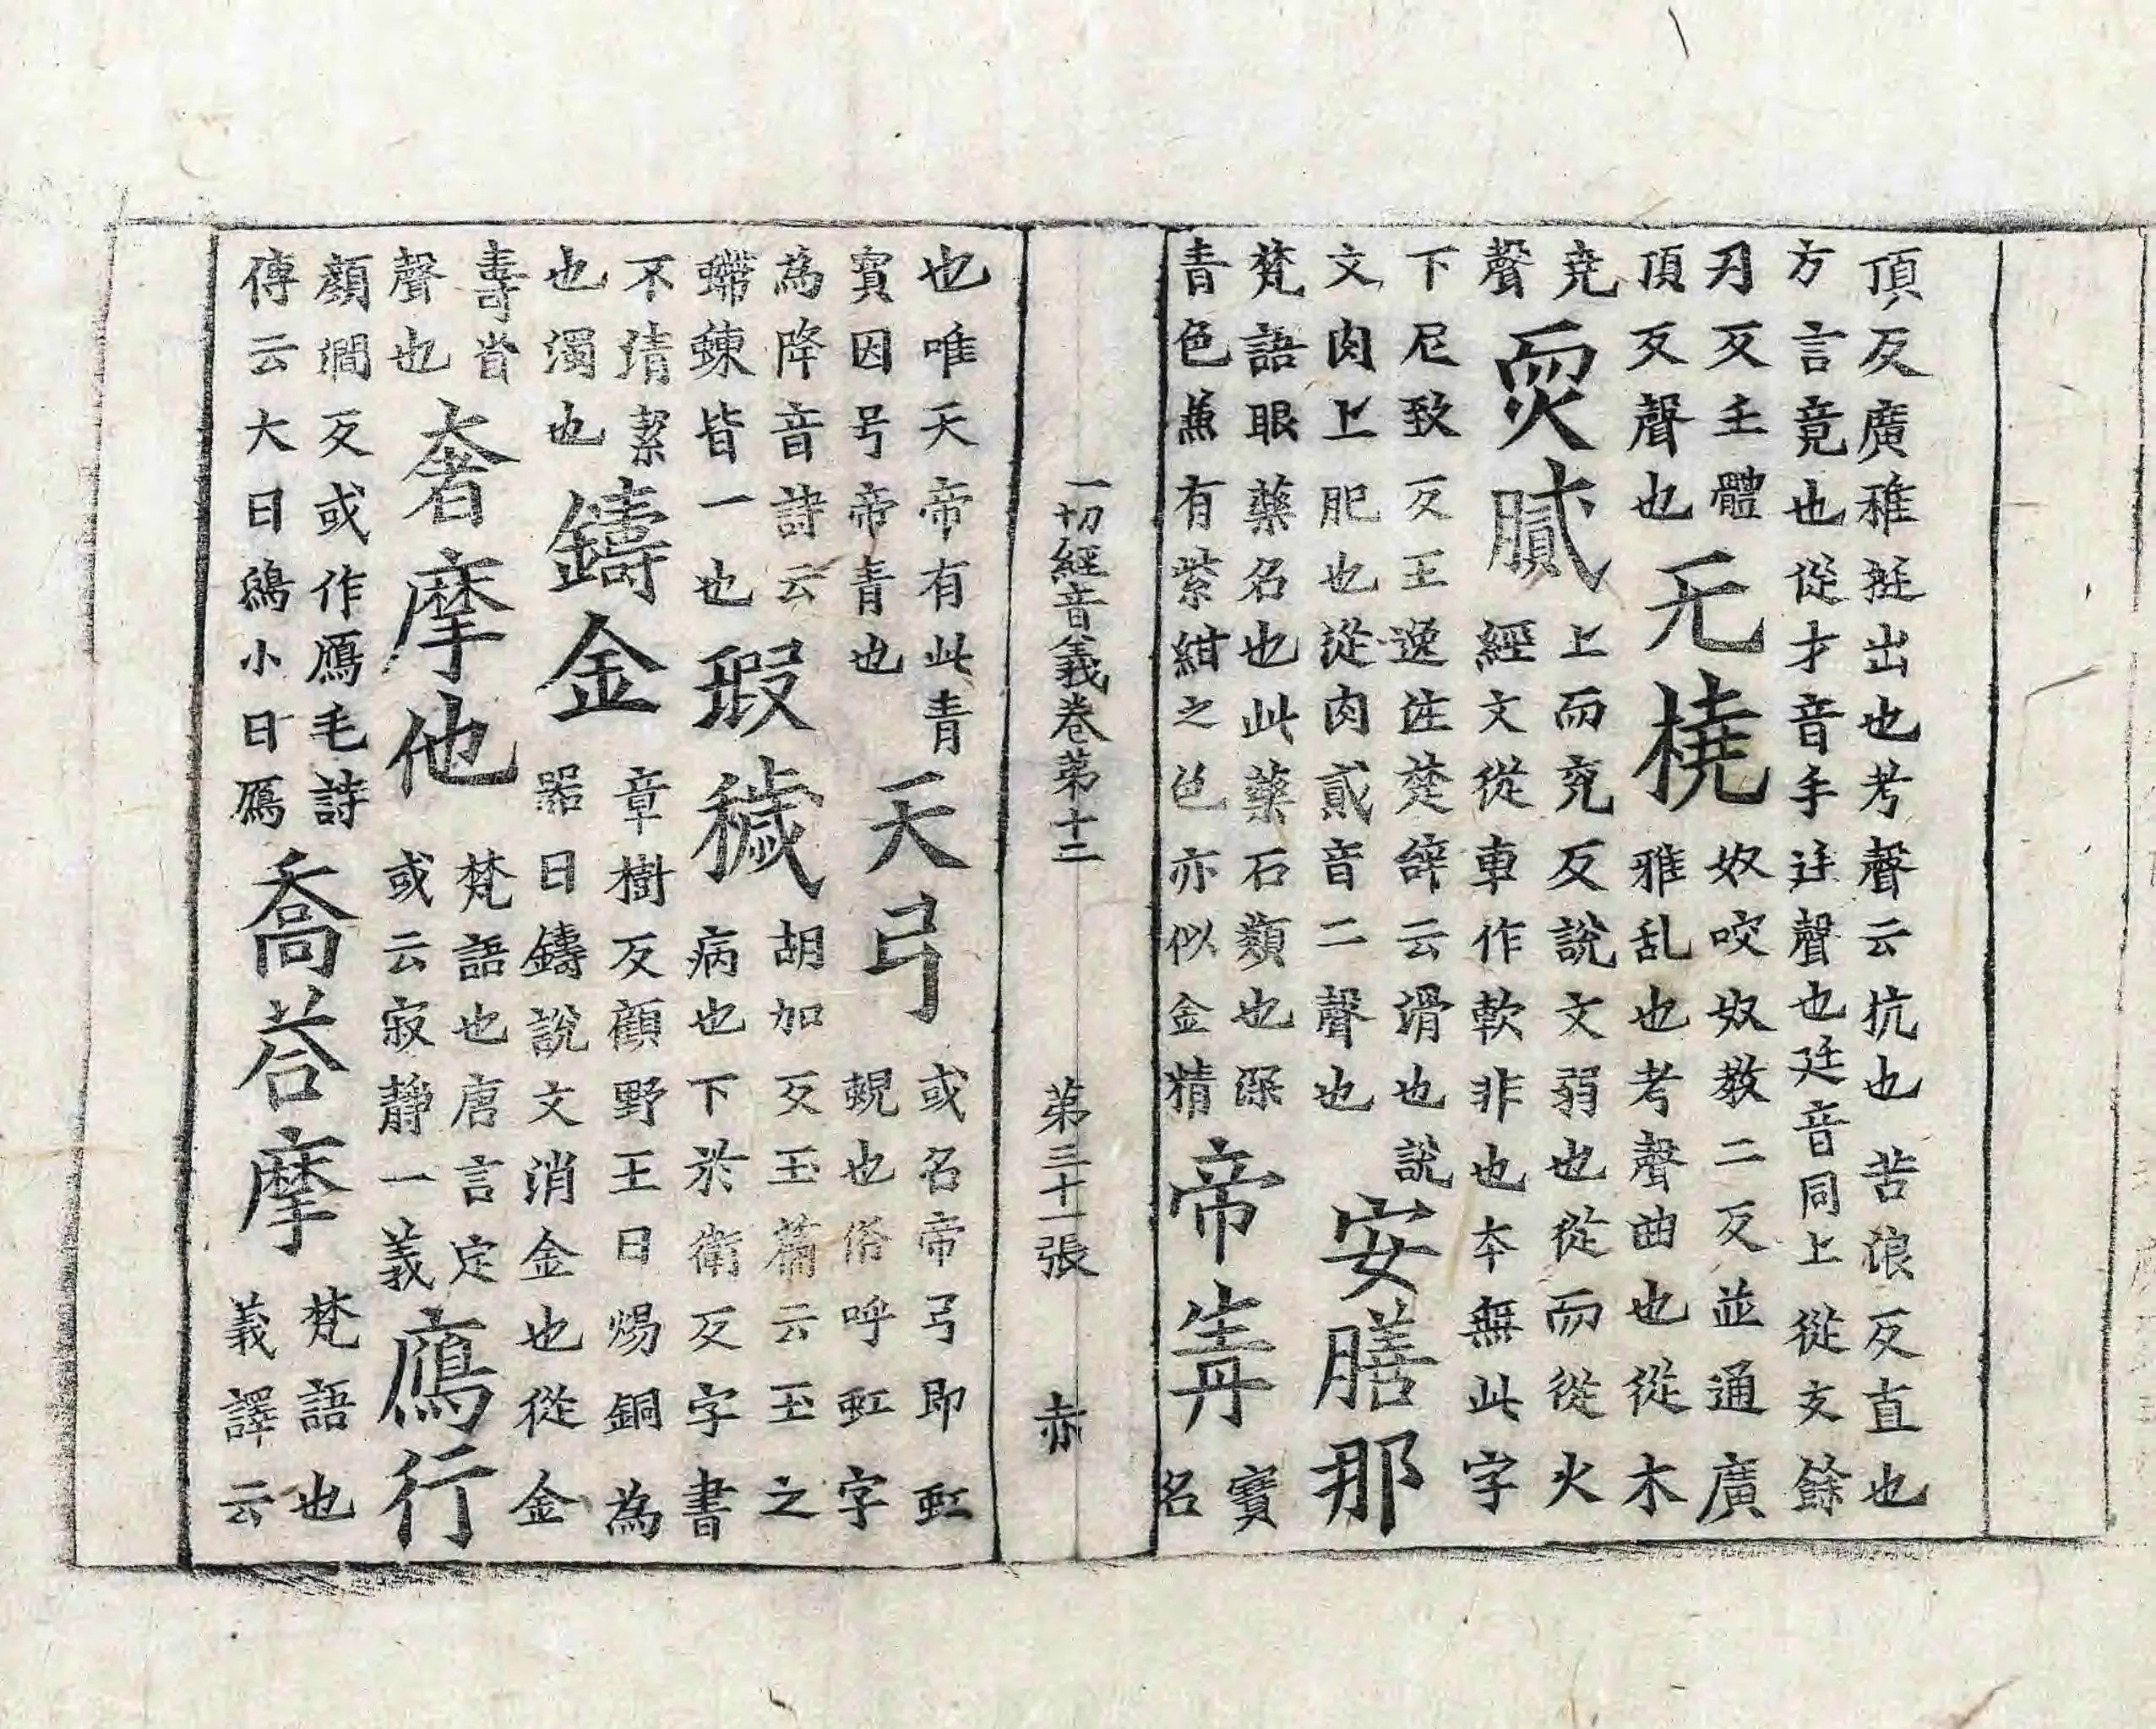 頂反廣雅挺出也考聲云抗也苦浪反直也
方言竟也從才音手廷聲也廷音同上從文餘
刃反壬體
頂反聲也
无橈
奴咬奴教二反並通廣
雅乱也考聲曲也從木
尭
聲
耎膩
上而兖反說文弱也從而從火
經文從車作軟非也本無此字
下尼致反王逸注楚辞云滑也說
文肉上肥也從肉貳音二聲也
安膳那
梵語眼藥名也此藥石類也深
青色兼有紫紺之色亦似金精
帝青
寶
名
一切經音義卷第十二 第三十一張 赤
也唯天帝有此青
寳因号帝青也
天弓
或名帝弓即虹
蜺也俗呼虹字
為降音詩云
螮蝀皆一也
瑕穢
胡加反玉篇云玉之
病也下於衛反字書
不清潔
也濁也
鑄金
章樹反顧野王曰煬銅為
器曰鑄說文消金也從金
壽省
聲也
奢摩他
梵語也唐言定
或云寂静一義
鴈行
顏澗反或作鴈毛詩
傳云大曰鴻小曰鴈
喬荅摩
梵語也
義譯云